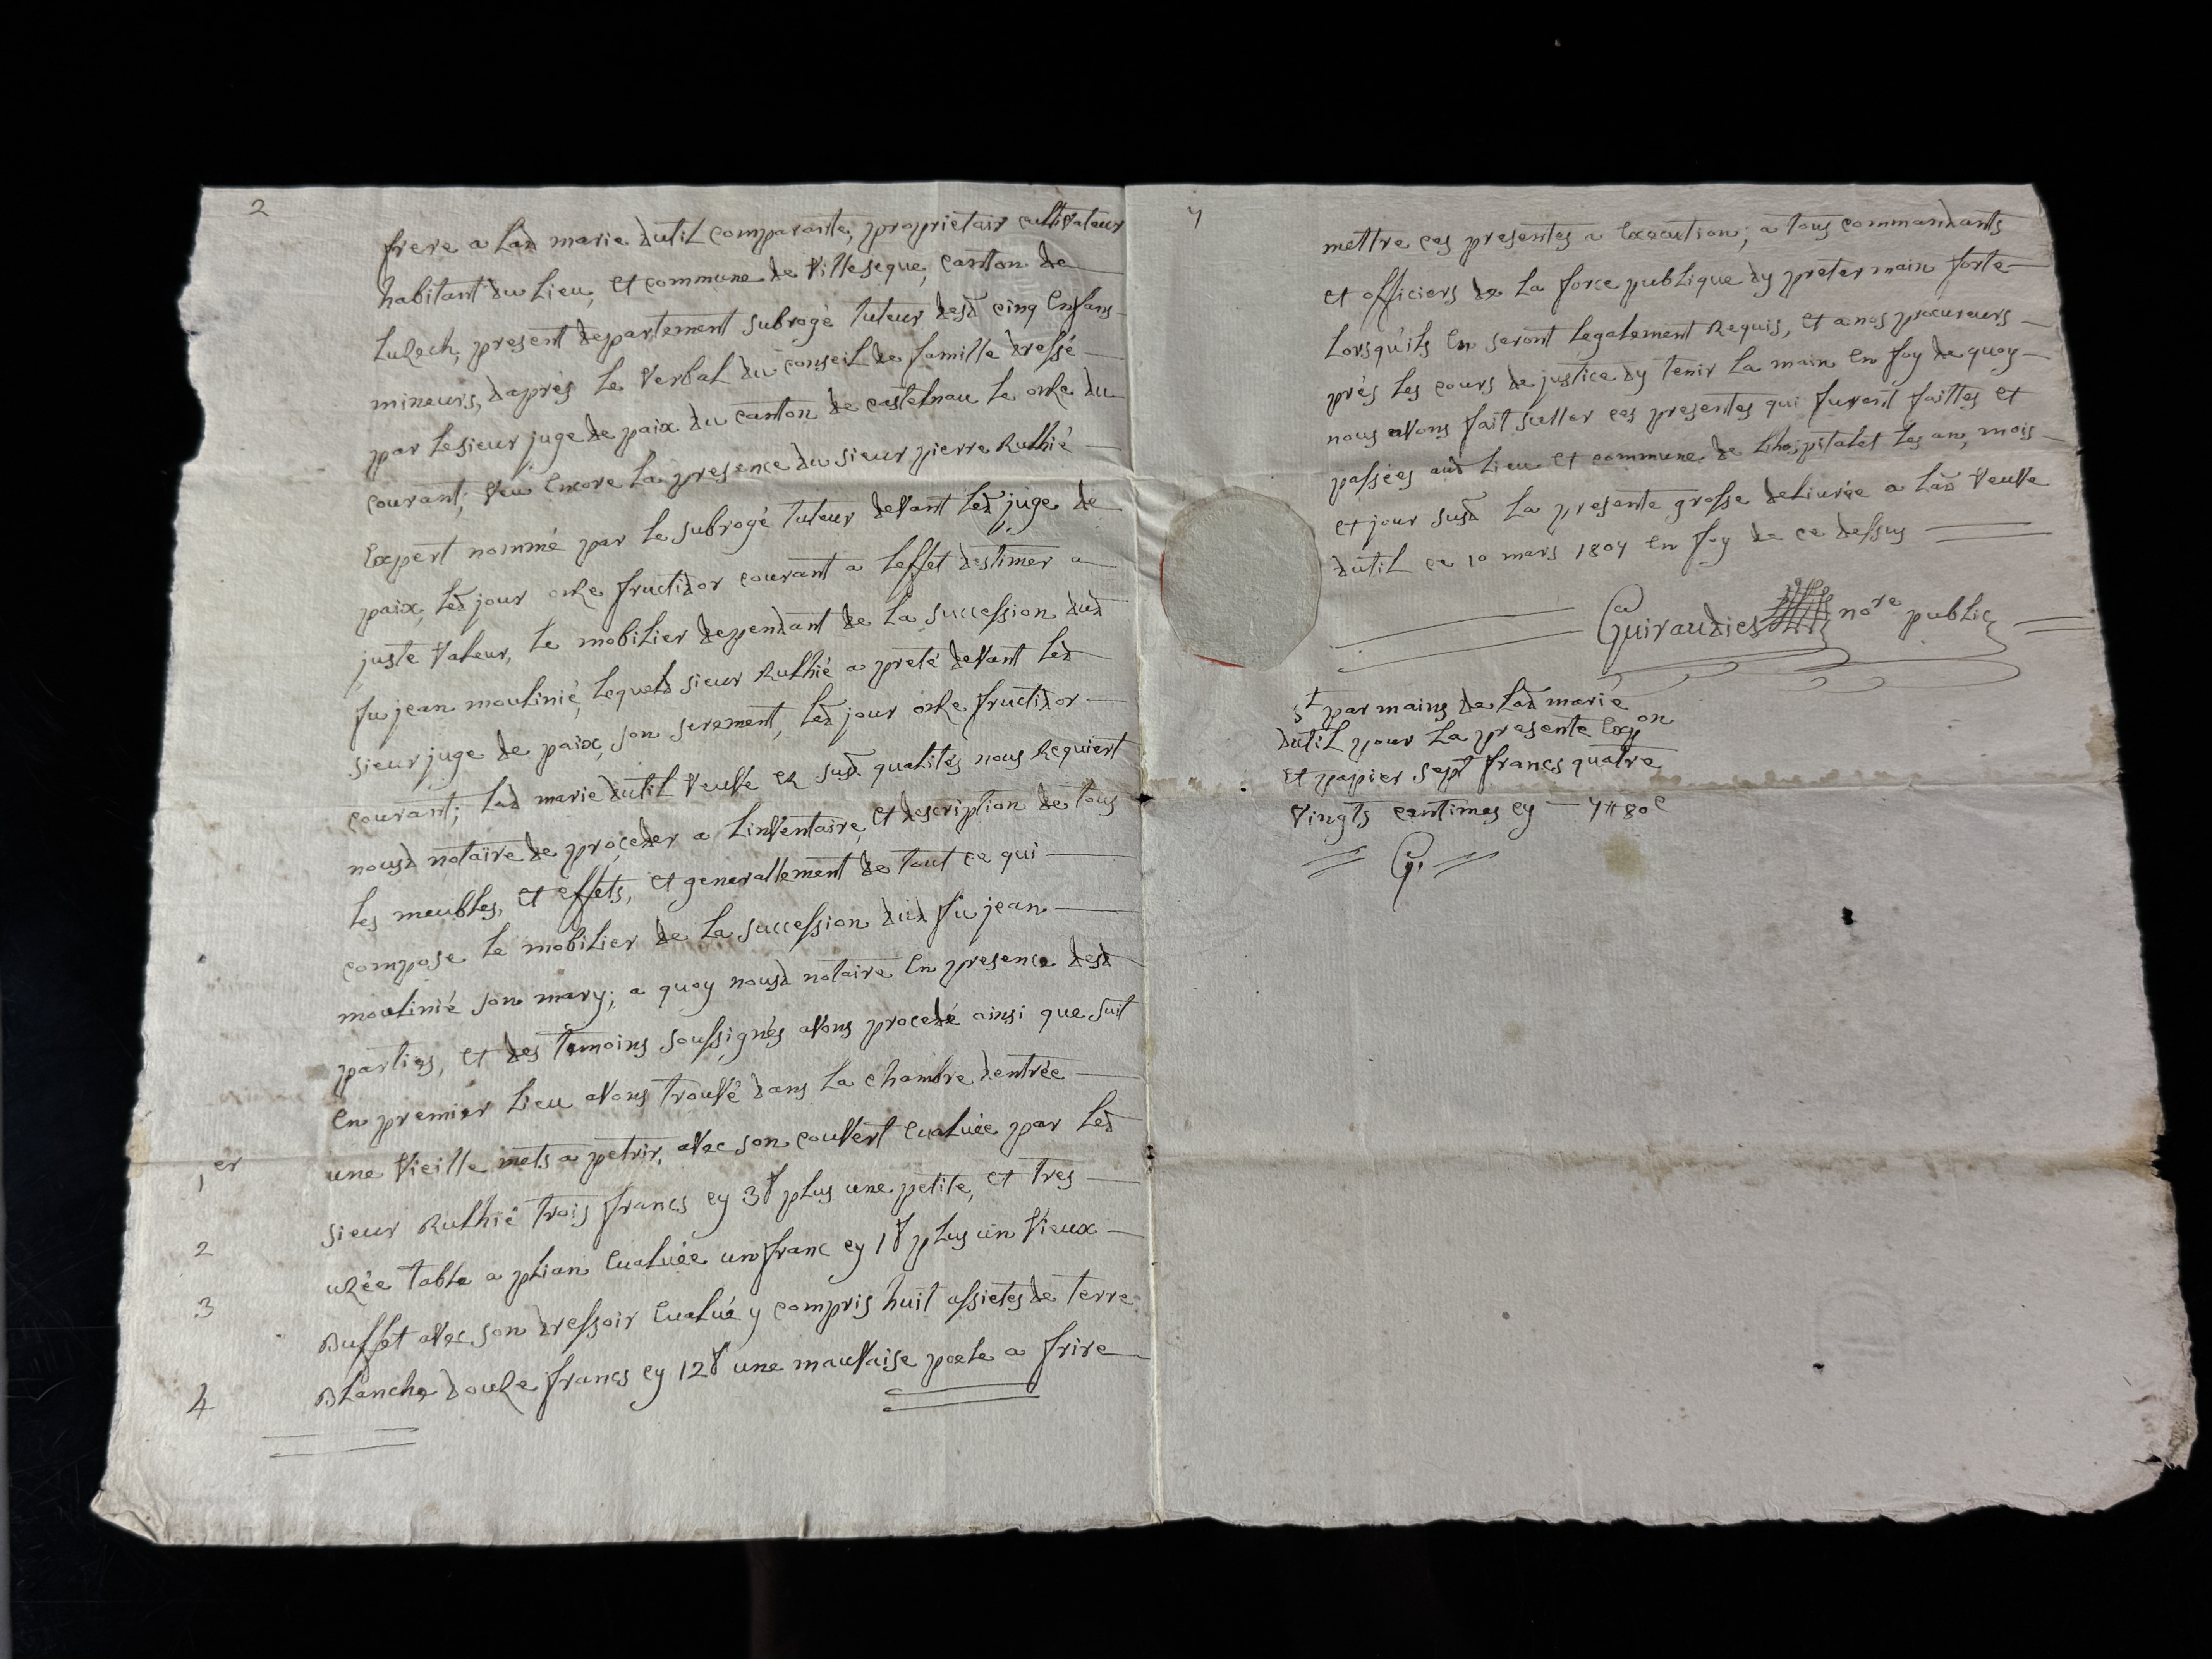 2
frere a lad marie dutil comparante, proprietair cultivateur
habitant du lieu, et commune de villeseque, canton de
Luzech, present departement subrogé tuteur desd cinq enfans
mineurs, daprés le verbal du conseil de famille dressé
par lesieur juge de paix du canton de castelnau le onze du
courant; veu encore la presence du sieur pierre Ruthié
Expert nommé par le subrogé tuteur devant led juge de
paix, led jour onze fructidor courant a leffet destimer a
juste valeur, le mobilier dependant de la succession dud
fu jean moulinié, lequeld sieur Ruthié a preté devant led
sieur juge de paix, son serement, led jour onze fructidor
courant; lad marie dutil veuve ez susd qualités nous Requiert
nousd notaire de proceder a linventaire, et description de tous
les meubles, et effets, et generallement de tout ce qui
compose le mobilier de la succession dud fu jean
moulinié son mary; a quoy nousd notaire en presence desd
parties, et des temoins soussignés avons procedé ainsi que suit
En premier lieu avons trouvé dans la chambre dentrée
1er une vieille mets a petrir, avec son couvert evaluée par led
sieur Ruthié trois francs cy 3f plus une petite, et tres
2 uzée table a plian evaluée un franc cy 1f plus un vieux
3 Buffet avec son dressoir evalué y compris huit assietes de terre
4 Blanche douze francs cy 12f une mauvaise poele a frire
7
mettre ces presentes a Execution; a tous commandants
et officiers de la force publique dy preter main forte
lorsqu'ils en seront legalement Requis, et a nos procureurs
prés les cours de justice dy tenir la main en foy de quoy
nous avons fait sceller ces presentes qui furent faittes et
passées aud lieu et commune de Lhospitalet les an, mois
et jour susd la presente grosse delivrée a lad veuve
dutil ce 10 mars 1807 en foy de ce dessus
Guiraudies nore public
par mains de lad marie
dutil pour la presente Expon
et papier sept francs quatre
vingts centimes cy 7tt 80c
G.